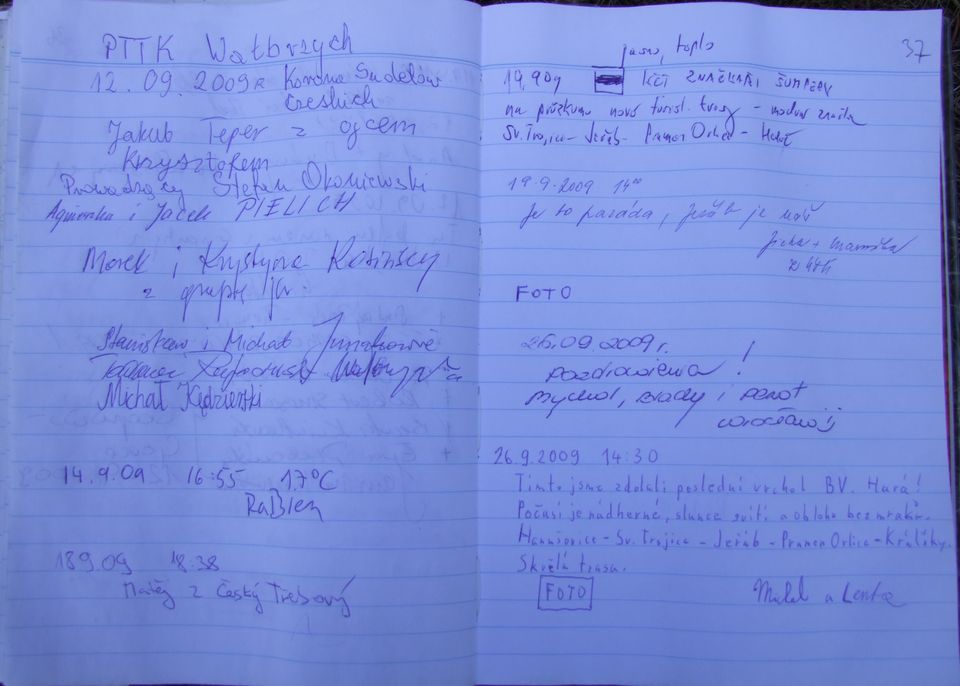 PTTK Wałbrzych
12.09.2009r Korona Sudetów
Czeskich
Jakub Teper z ojcem
Krzysztofem
Prowadzący Stefan Okoniewski
Agnieszka i Jacek PIELICH
Marek i Krystyna
z grupy jw.
Stanisław i Michał
Michał Kędzierski
14.9.09 16:55 17°C
18 9.09 18:38
Matěj z Český Třebový
37
jasno, teplo
19.9.09 KČT ZNAČKAŘI ŠUMPERK
na průzkumu nové turist. trasy - modrá značka
Sv. Trojice - Jeřáb - Pramen Orlice -
19.9.2009 14⁰⁰
Je to paráda, Jeřáb je náš
FOTO
26.09.2009r.
pozdrowienia!
26.9.2009 14:30
Tímto jsme zdolali poslední vrchol BV. Hurá!
Počasí je nádherné, slunce svítí a obloha bez mraků.
Hanušovice - Sv. Trojice - Jeřáb - Pramen Orlice - Králíky.
Skvělá trasa.
FOTO
Michal a Lenka